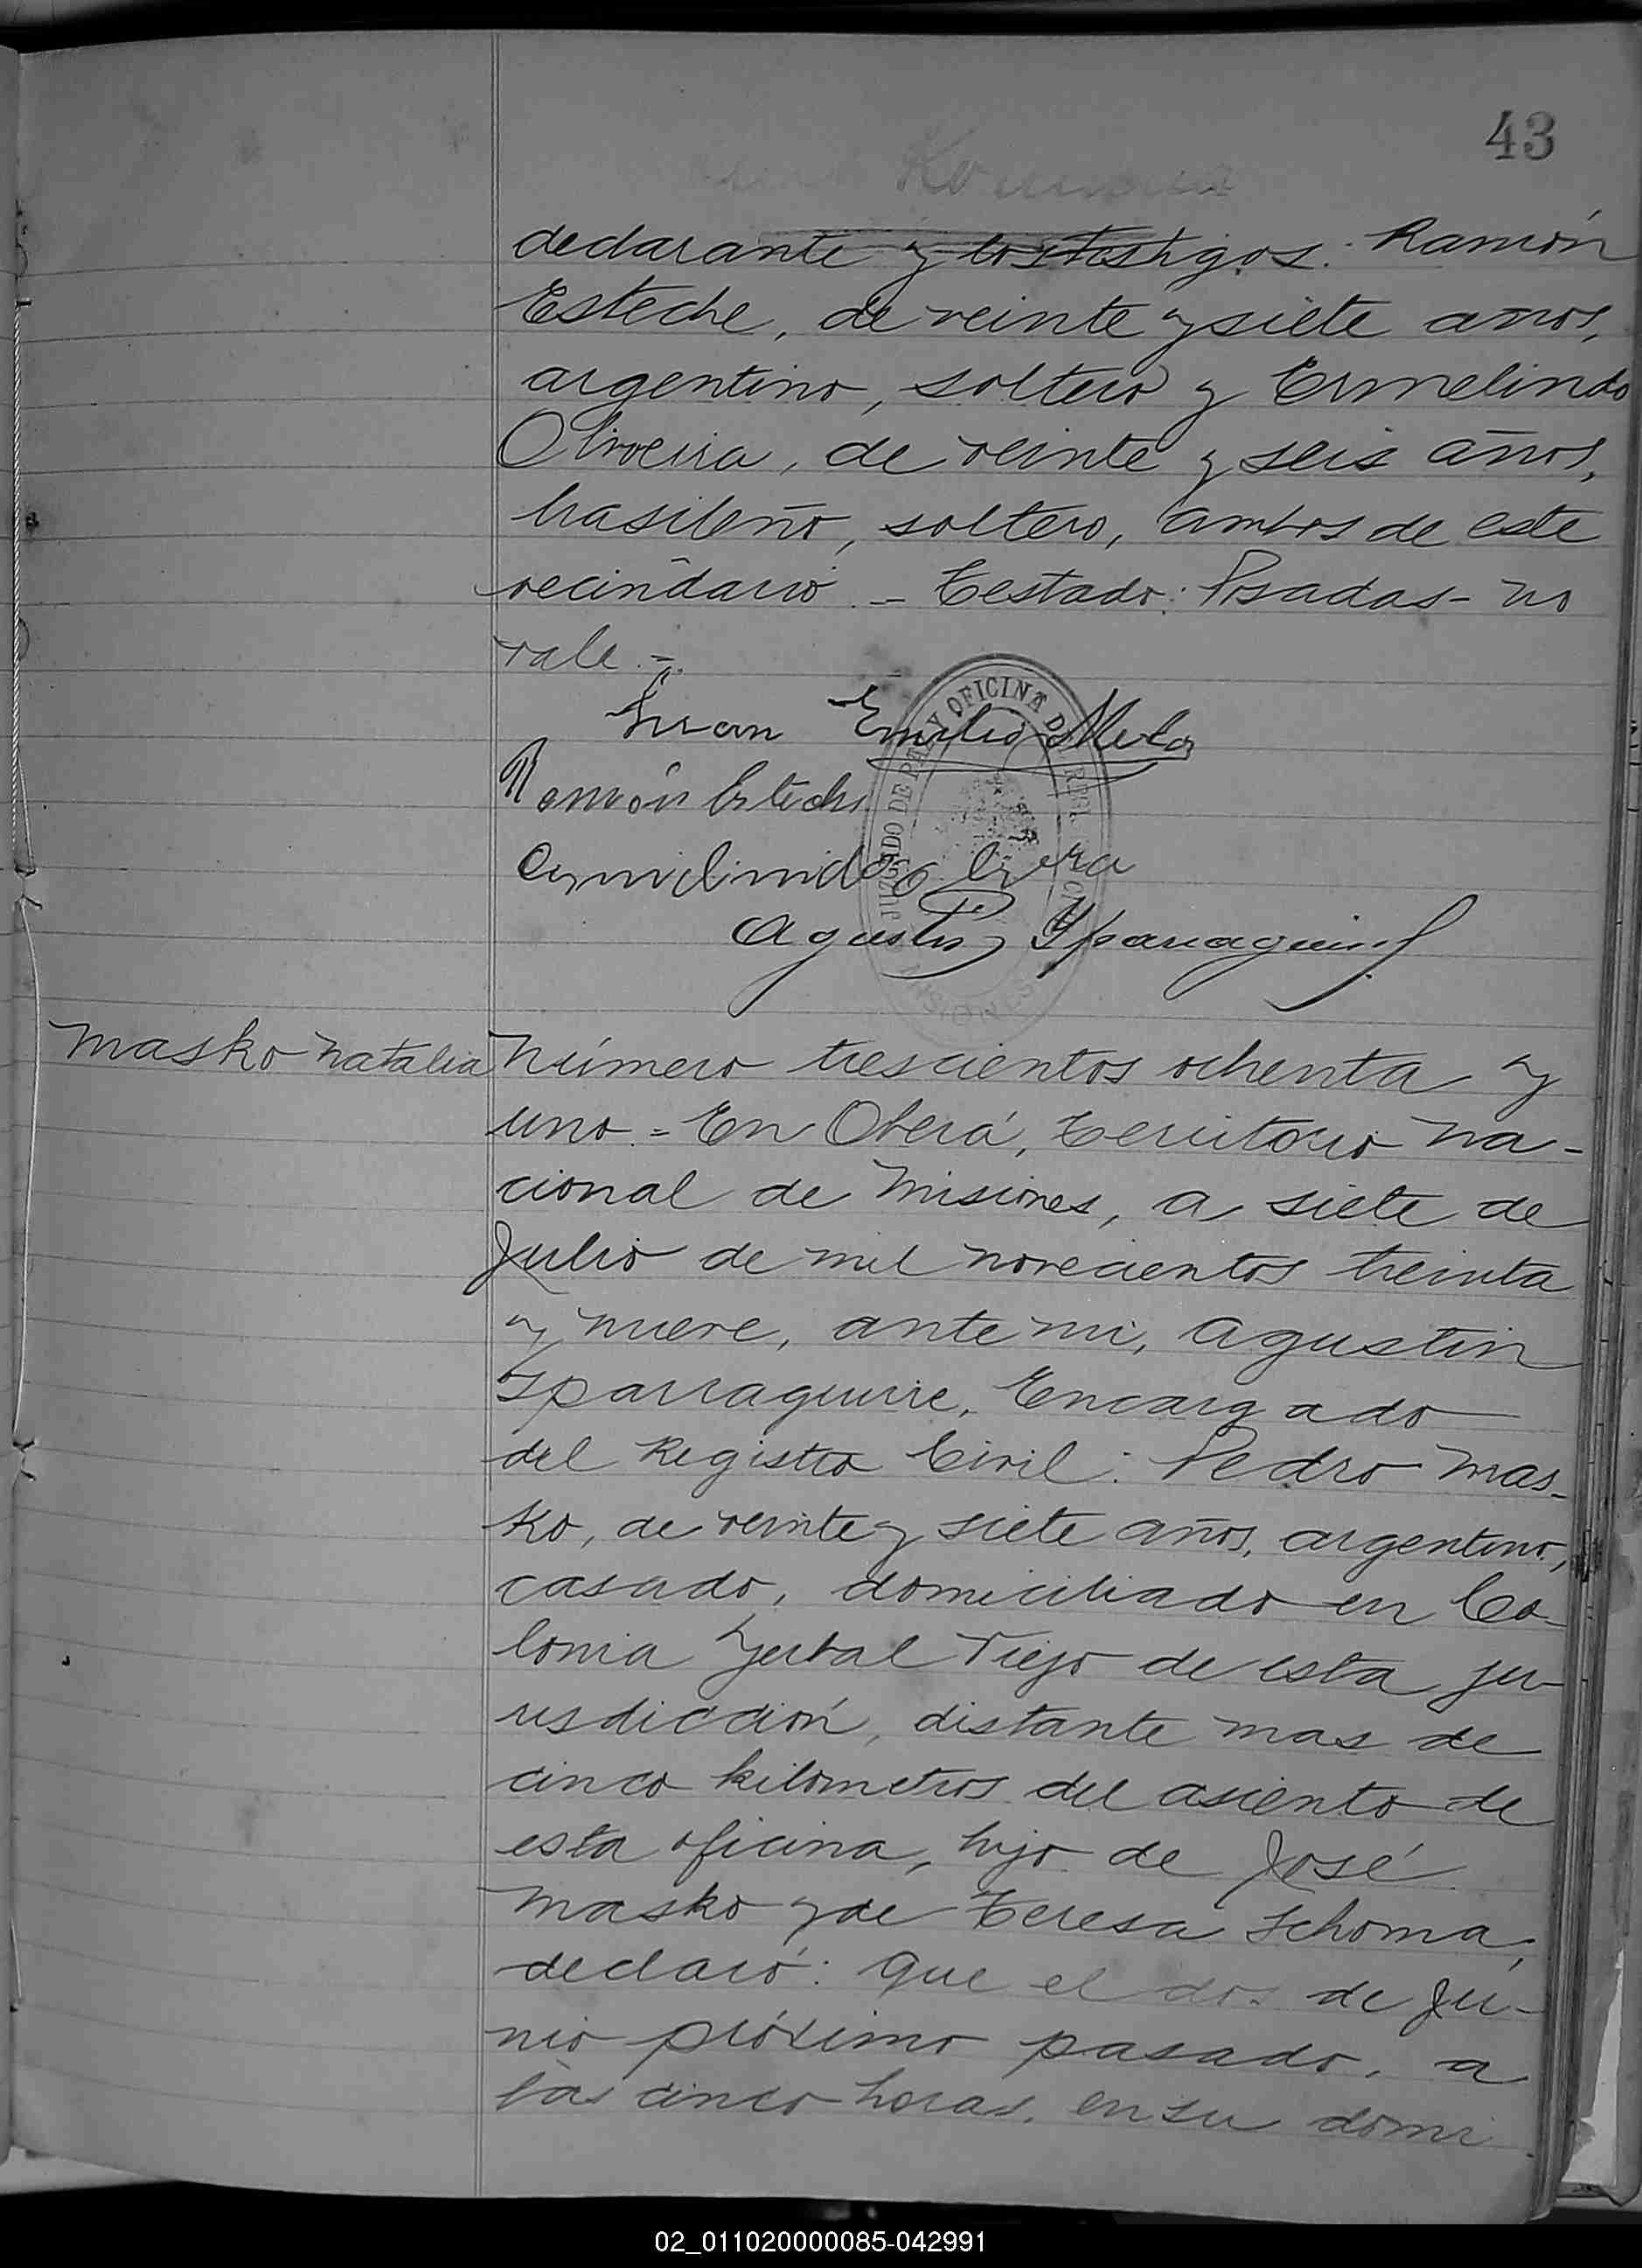 43
declarante y los testigos: Ramón
Esteche, de veinte y siete años,
argentino, soltero y Ermelindo
Oliveira, de veinte y seis años,
brasileño, soltero, ambos de este
vecindario. - Testado: Posadas - no
vale. -
Juan Emilio Melo
Ramón Esteche
JUZGADO DE PAZ Y OFICINA DEL REG. CIVIL
MISIONES
Agustín Yparraguirre
Masko Natalia
Número trescientos ochenta y
uno. = En Oberá, Territorio Na-
cional de Misiones, a siete de
Julio de mil novecientos treinta
y nueve, ante mi, Agustin
Yparraguirre, Encargado
del Registro Civil: Pedro Mas-
ko, de veinte y siete años, argentino,
casado, domiciliado en Co-
lonia Yerbal Viejo de esta ju-
risdicción, distante mas de
cinco kilometros del asiento de
esta oficina, hijo de José
Masko y de Teresa Schoma,
declaró: Que el dos de Ju-
nio próximo pasado, a
las cinco horas, en su domi
02_011020000085-042991